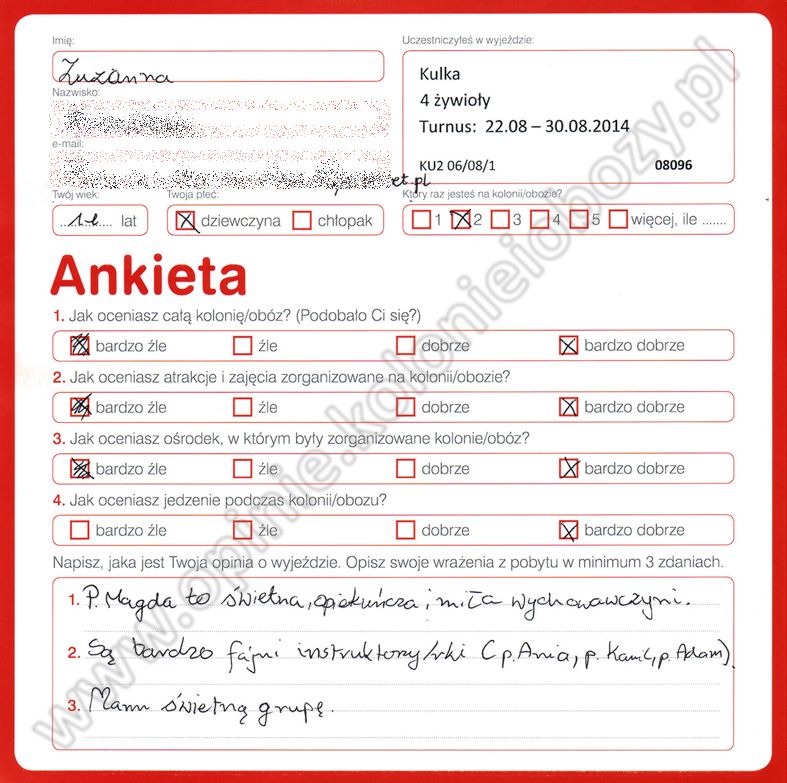 Imię:
Uczestniczyłeś w wyjeździe:
Zuzanna
Kulka
Nazwisko:
4 żywioły
Turnus: 22.08 – 30.08.2014
e-mail:
KU2 06/08/1 08096
et.pl
Twój wiek:
Twoja płeć:
Który raz jesteś na kolonii/obozie?
lat
dziewczyna chłopak
1 2 3 4 5 więcej, ile .......
Ankieta
1. Jak oceniasz całą kolonię/obóz? (Podobało Ci się?)
bardzo źle źle dobrze bardzo dobrze
2. Jak oceniasz atrakcje i zajęcia zorganizowane na kolonii/obozie?
bardzo źle źle dobrze bardzo dobrze
3. Jak oceniasz ośrodek, w którym były zorganizowane kolonie/obóz?
bardzo źle źle dobrze bardzo dobrze
4. Jak oceniasz jedzenie podczas kolonii/obozu?
bardzo źle źle dobrze bardzo dobrze
Napisz, jaka jest Twoja opinia o wyjeździe. Opisz swoje wrażenia z pobytu w minimum 3 zdaniach.
1. P. Magda to świetna, opiekuńcza i miła wychowawczyni.
2. Są bardzo fajni instruktorzy/rki (p. Ania, p. Kamil, p. Adam).
3. Mam świetną grupę.
www.opinie.kolonieiobozy.pl